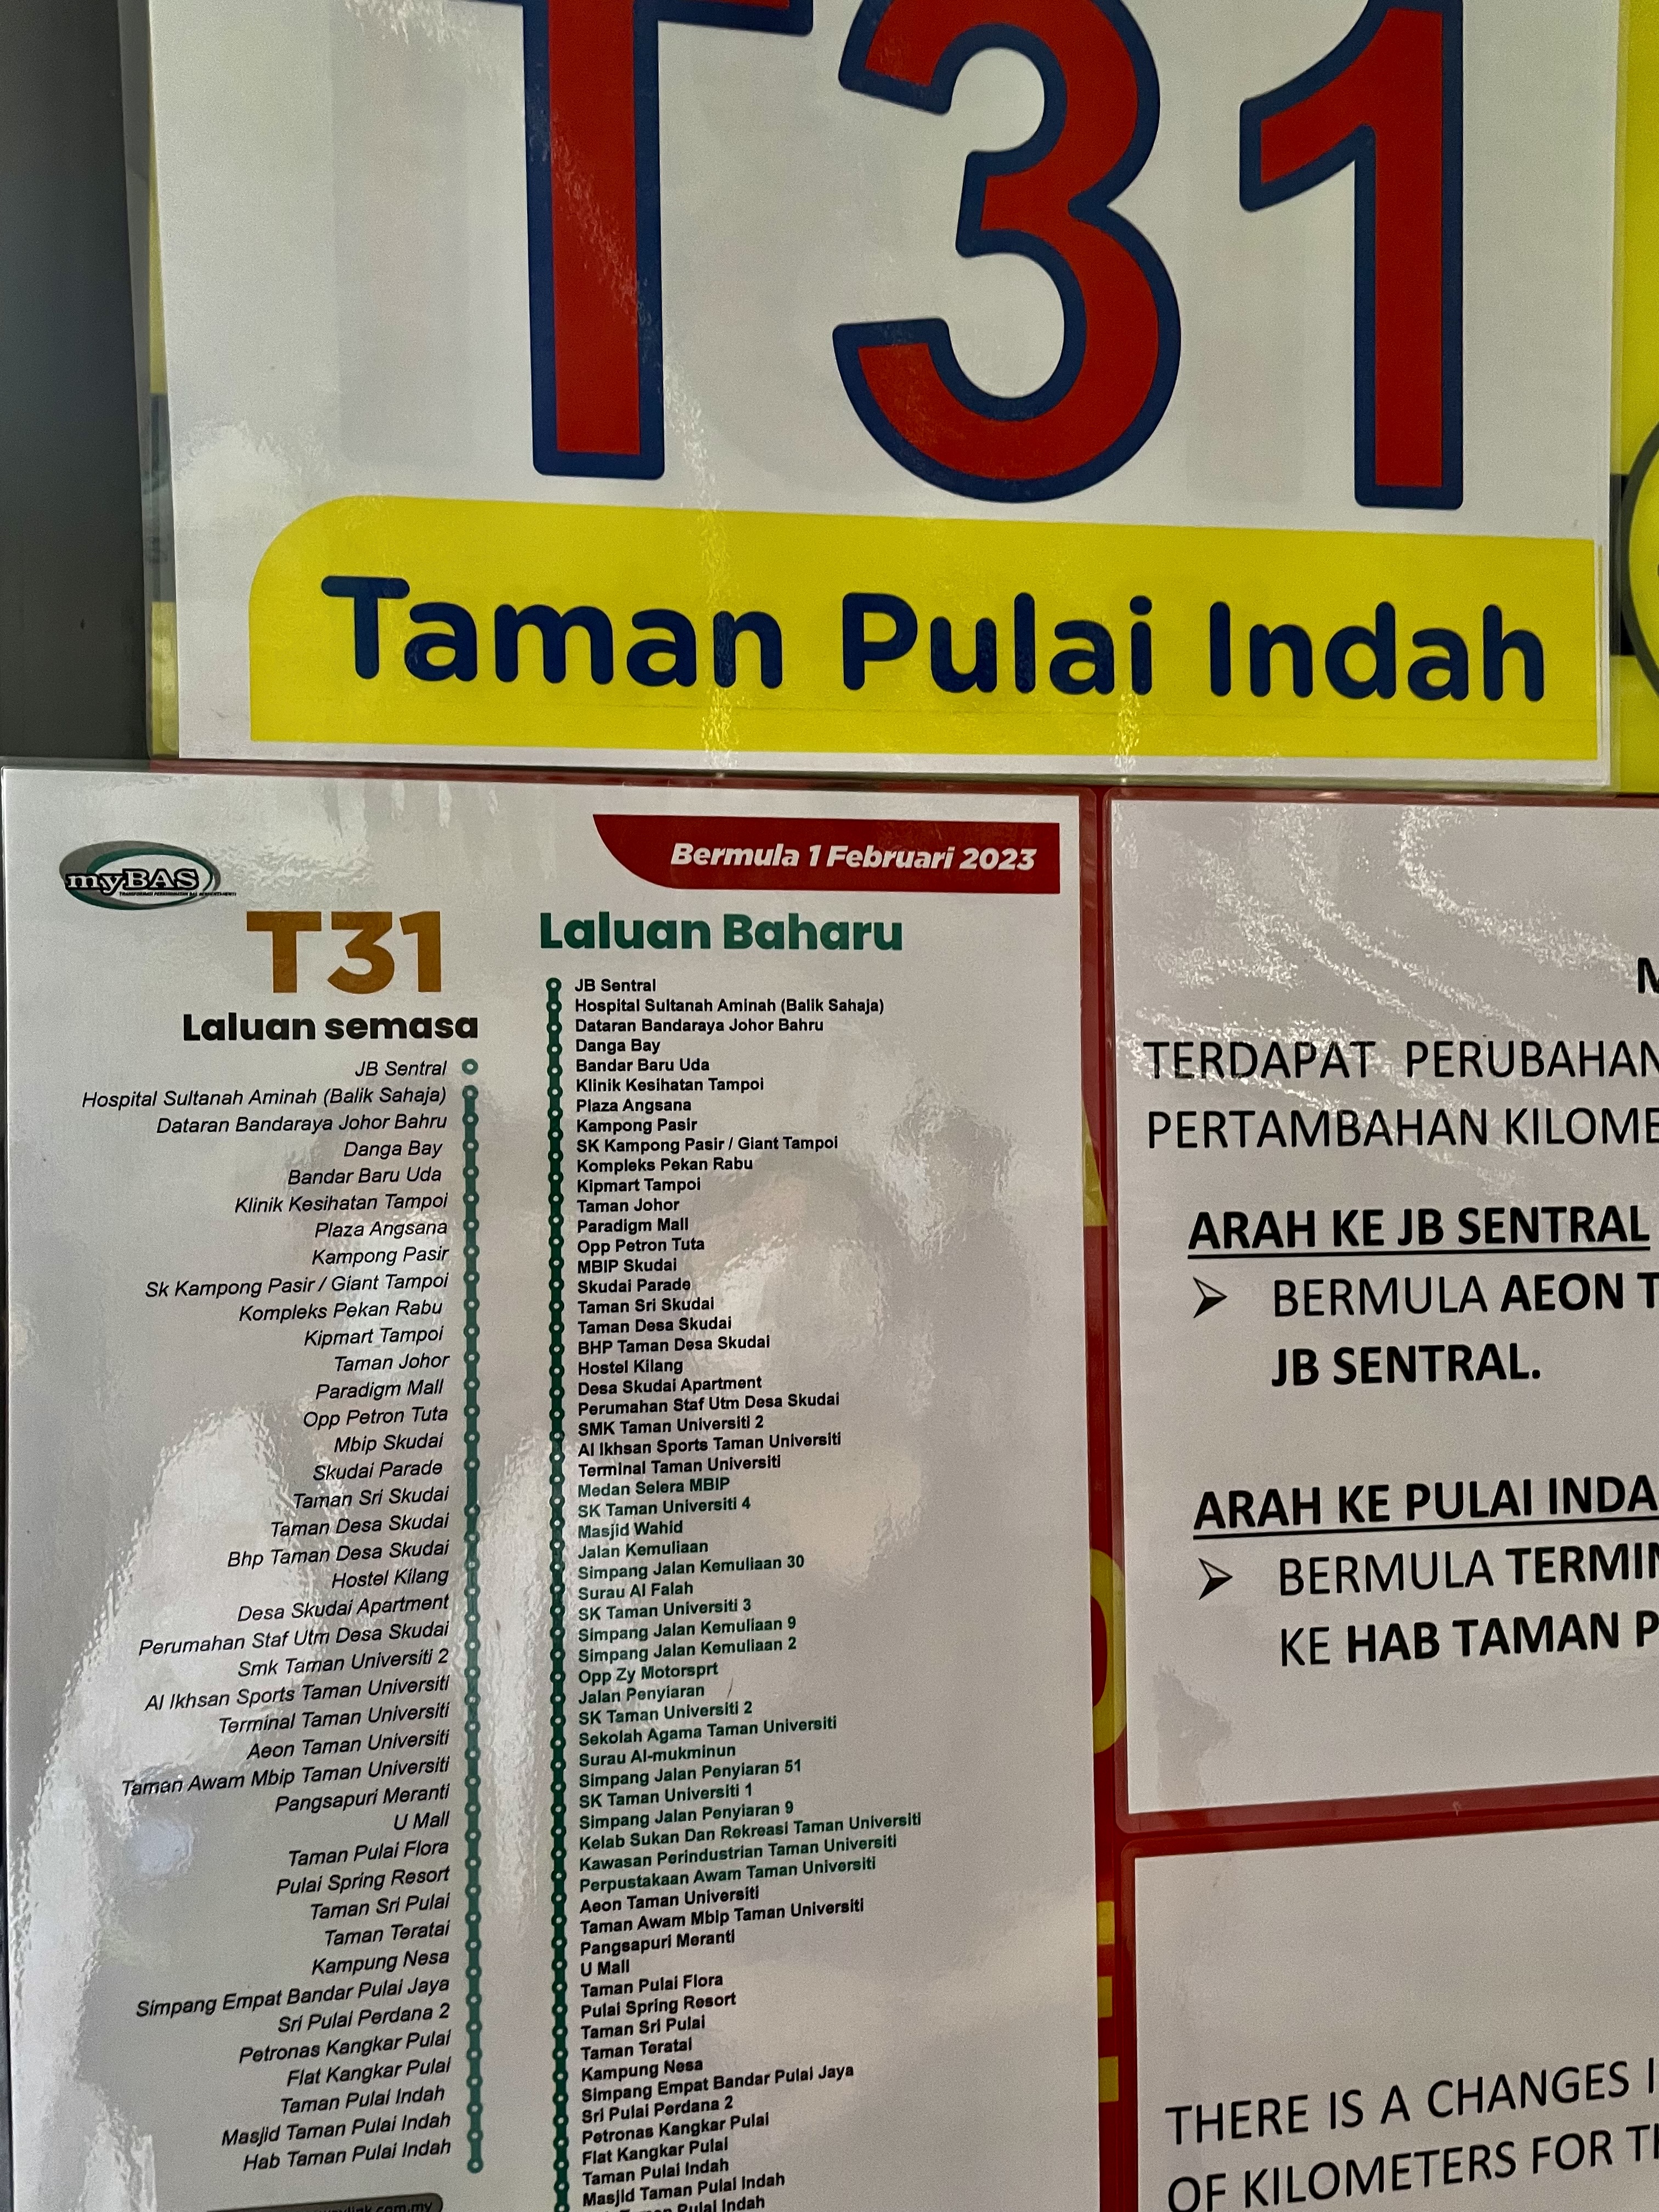 T31
Taman Pulai Indah
myBAS
Bermula 1 Februari 2023
T31
Laluan semasa
JB Sentral
Hospital Sultanah Aminah (Balik Sahaja)
Dataran Bandaraya Johor Bahru
Danga Bay
Bandar Baru Uda
Klinik Kesihatan Tampoi
Plaza Angsana
Kampong Pasir
Sk Kampong Pasir / Giant Tampoi
Kompleks Pekan Rabu
Kipmart Tampoi
Taman Johor
Paradigm Mall
Opp Petron Tuta
Mbip Skudai
Skudai Parade
Taman Sri Skudai
Taman Desa Skudai
Bhp Taman Desa Skudai
Hostel Kilang
Desa Skudai Apartment
Perumahan Staf Utm Desa Skudai
Smk Taman Universiti 2
Al Ikhsan Sports Taman Universiti
Terminal Taman Universiti
Aeon Taman Universiti
Taman Awam Mbip Taman Universiti
Pangsapuri Meranti
U Mall
Taman Pulai Flora
Pulai Spring Resort
Taman Sri Pulai
Taman Teratai
Kampung Nesa
Simpang Empat Bandar Pulai Jaya
Sri Pulai Perdana 2
Petronas Kangkar Pulai
Flat Kangkar Pulai
Taman Pulai Indah
Masjid Taman Pulai Indah
Hab Taman Pulai Indah
Laluan Baharu
JB Sentral
Hospital Sultanah Aminah (Balik Sahaja)
Dataran Bandaraya Johor Bahru
Danga Bay
Bandar Baru Uda
Klinik Kesihatan Tampoi
Plaza Angsana
Kampong Pasir
SK Kampong Pasir / Giant Tampoi
Kompleks Pekan Rabu
Kipmart Tampoi
Taman Johor
Paradigm Mall
Opp Petron Tuta
MBIP Skudai
Skudai Parade
Taman Sri Skudai
Taman Desa Skudai
BHP Taman Desa Skudai
Hostel Kilang
Desa Skudai Apartment
Perumahan Staf Utm Desa Skudai
SMK Taman Universiti 2
Al Ikhsan Sports Taman Universiti
Terminal Taman Universiti
Medan Selera MBIP
SK Taman Universiti 4
Masjid Wahid
Jalan Kemuliaan
Simpang Jalan Kemuliaan 30
Surau Al Falah
SK Taman Universiti 3
Simpang Jalan Kemuliaan 9
Simpang Jalan Kemuliaan 2
Opp Zy Motorsprt
Jalan Penyiaran
SK Taman Universiti 2
Sekolah Agama Taman Universiti
Surau Al-mukminun
Simpang Jalan Penyiaran 51
SK Taman Universiti 1
Simpang Jalan Penyiaran 9
Kelab Sukan Dan Rekreasi Taman Universiti
Kawasan Perindustrian Taman Universiti
Perpustakaan Awam Taman Universiti
Aeon Taman Universiti
Taman Awam Mbip Taman Universiti
Pangsapuri Meranti
U Mall
Taman Pulai Flora
Pulai Spring Resort
Taman Sri Pulai
Taman Teratai
Kampung Nesa
Simpang Empat Bandar Pulai Jaya
Sri Pulai Perdana 2
Petronas Kangkar Pulai
Flat Kangkar Pulai
Taman Pulai Indah
Masjid Taman Pulai Indah
Pulai Indah
TERDAPAT PERUBAHAN
PERTAMBAHAN KILOME
ARAH KE JB SENTRAL
➢ BERMULA AEON T
JB SENTRAL.
ARAH KE PULAI INDA
➢ BERMULA TERMIN
KE HAB TAMAN P
THERE IS A CHANGES I
OF KILOMETERS FOR TH